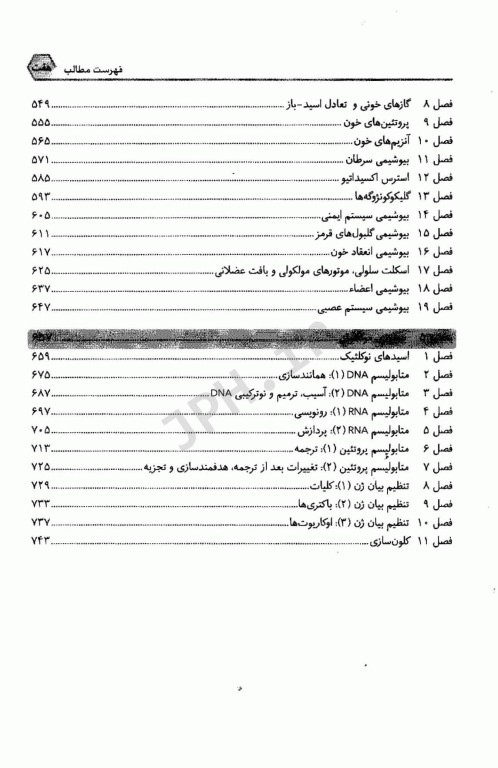 فهرست مطالب هفت
فصل ۸ گازهای خونی و تعادل اسید-باز ۵۴۹
فصل ۹ پروتئین‌های خون ۵۵۵
فصل ۱۰ آنزیم‌های خون ۵۶۵
فصل ۱۱ بیوشیمی سرطان ۵۷۱
فصل ۱۲ استرس اکسیداتیو ۵۸۵
فصل ۱۳ گلیکوکونژوگه‌ها ۵۹۳
فصل ۱۴ بیوشیمی سیستم ایمنی ۶۰۵
فصل ۱۵ بیوشیمی گلبول‌های قرمز ۶۱۱
فصل ۱۶ بیوشیمی انعقاد خون ۶۱۷
فصل ۱۷ اسکلت سلولی، موتورهای مولکولی و بافت عضلانی ۶۲۵
فصل ۱۸ بیوشیمی اعضاء ۶۳۷
فصل ۱۹ بیوشیمی سیستم عصبی ۶۴۷
۶۵۷
فصل ۱ اسیدهای نوکلئیک ۶۵۹
فصل ۲ متابولیسم DNA (۱): همانندسازی ۶۷۵
فصل ۳ متابولیسم DNA (۲): آسیب، ترمیم و نوترکیبی DNA ۶۸۷
فصل ۴ متابولیسم RNA (۱): رونویسی ۶۹۷
فصل ۵ متابولیسم RNA (۲): پردازش ۷۰۵
فصل ۶ متابولیسم پروتئین (۱): ترجمه ۷۱۳
فصل ۷ متابولیسم پروتئین (۲): تغییرات بعد از ترجمه، هدفمندسازی و تجزیه ۷۲۵
فصل ۸ تنظیم بیان ژن (۱): کلیات ۷۲۹
فصل ۹ تنظیم بیان ژن (۲): باکتری‌ها ۷۳۳
فصل ۱۰ تنظیم بیان ژن (۳): اوکاریوت‌ها ۷۳۷
فصل ۱۱ کلون‌سازی ۷۴۳
JPH.ir